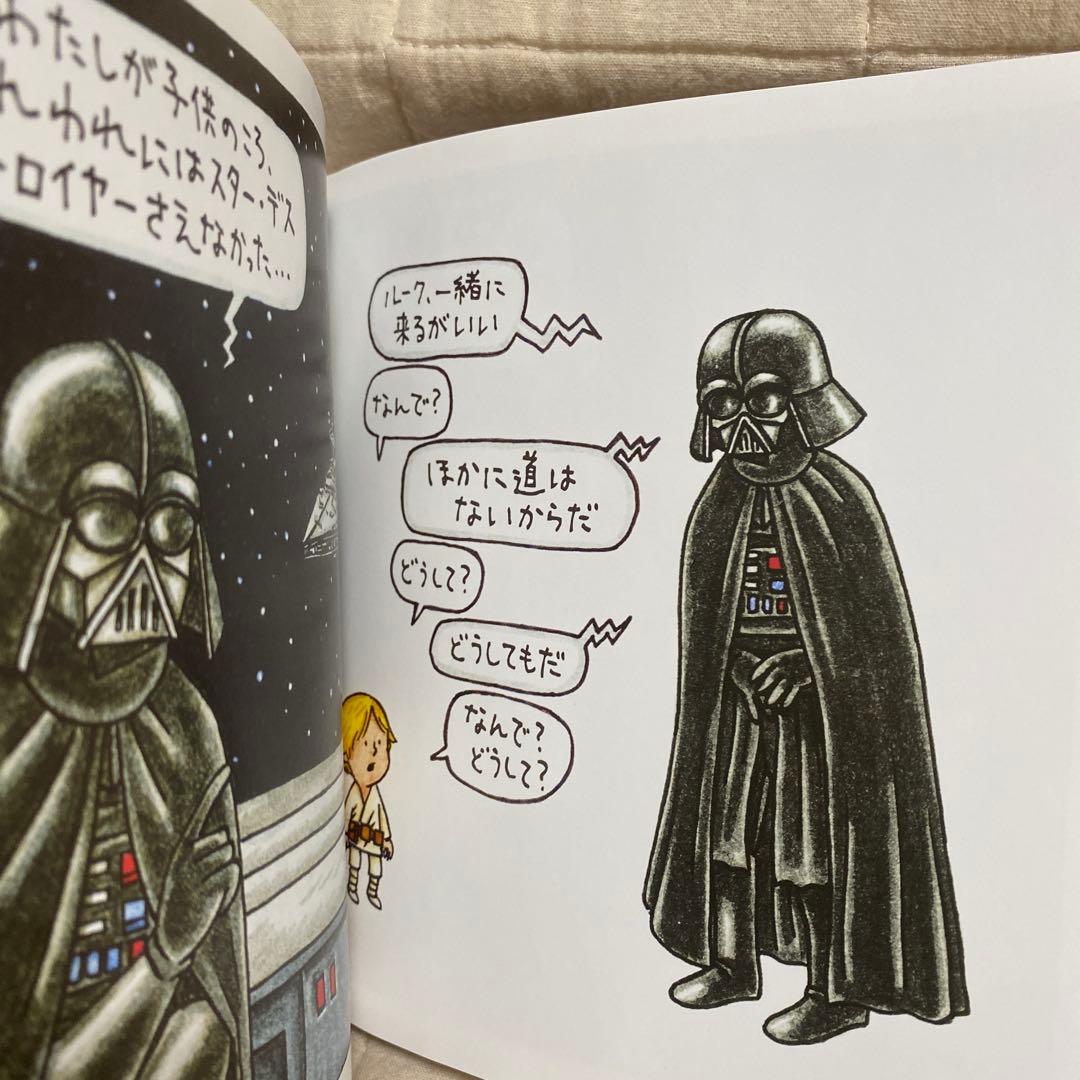 わたしが子供のころ、
れわれにはスター・デス
ロイヤーさえなかった…
ルーク、一緒に
来るがいい
なんで?
ほかに道は
ないからだ
どうして?
どうしてもだ
なんで?
どうして?